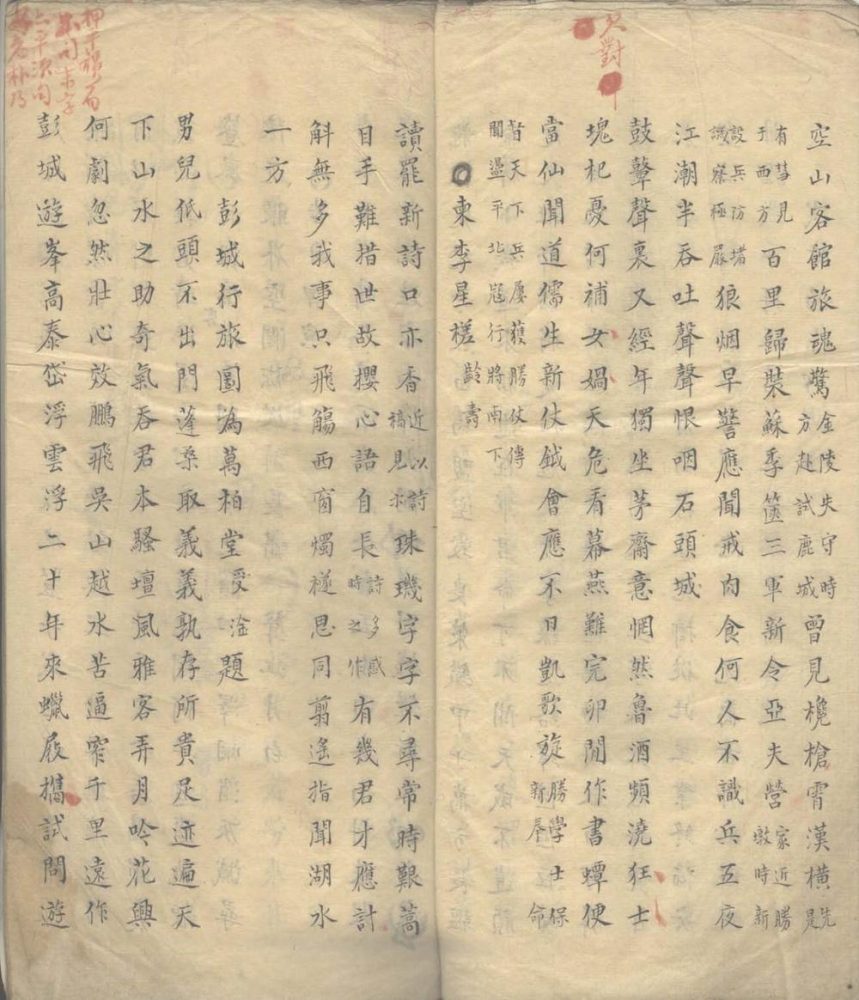 久對
空山客館旅魂驚金陵失守時方赴試鹿城曾見欃槍霄漢橫先是
有彗見于西方百里歸裝蘇季篋三軍新令亞夫營家近勝墩時新
設兵防堵譏察極嚴狼烟早警應聞戒肉食何人不識兵五夜
江潮半吞吐聲聲恨咽石頭城
鼓鼙聲裏又經年獨坐茅齋意惘然魯酒頻澆狂士
塊杞憂何補女媧天危看幕燕難完卵閒作書蟫便
當仙聞道儒生新仗鉞會應不日凱歌旋勝學士保新辰命
皆天下兵屢獲勝仗傳聞盪平北冠行將南下
柬李星槎齡壽
讀罷新詩口亦香近以詩稿見示珠璣字字不尋常時艱蒿
目手難措世故攖心語自長詩多感時之作有幾君才應計
斛無多我事只飛觴西窗燭穗思同剪遙指聞湖水
一方
彭城行旅圖為萬柏堂受淦題
男兒低頭不出門蓬桑取義義孰存所貴足迹遍天
下山水之助奇氣吞君本騷壇風雅客弄月吟花興
何劇忽然壯心效鵬飛吳山越水苦逼窄千里遠作
彭城遊峯高泰岱浮雲浮二十年來蠟屐攜試問遊